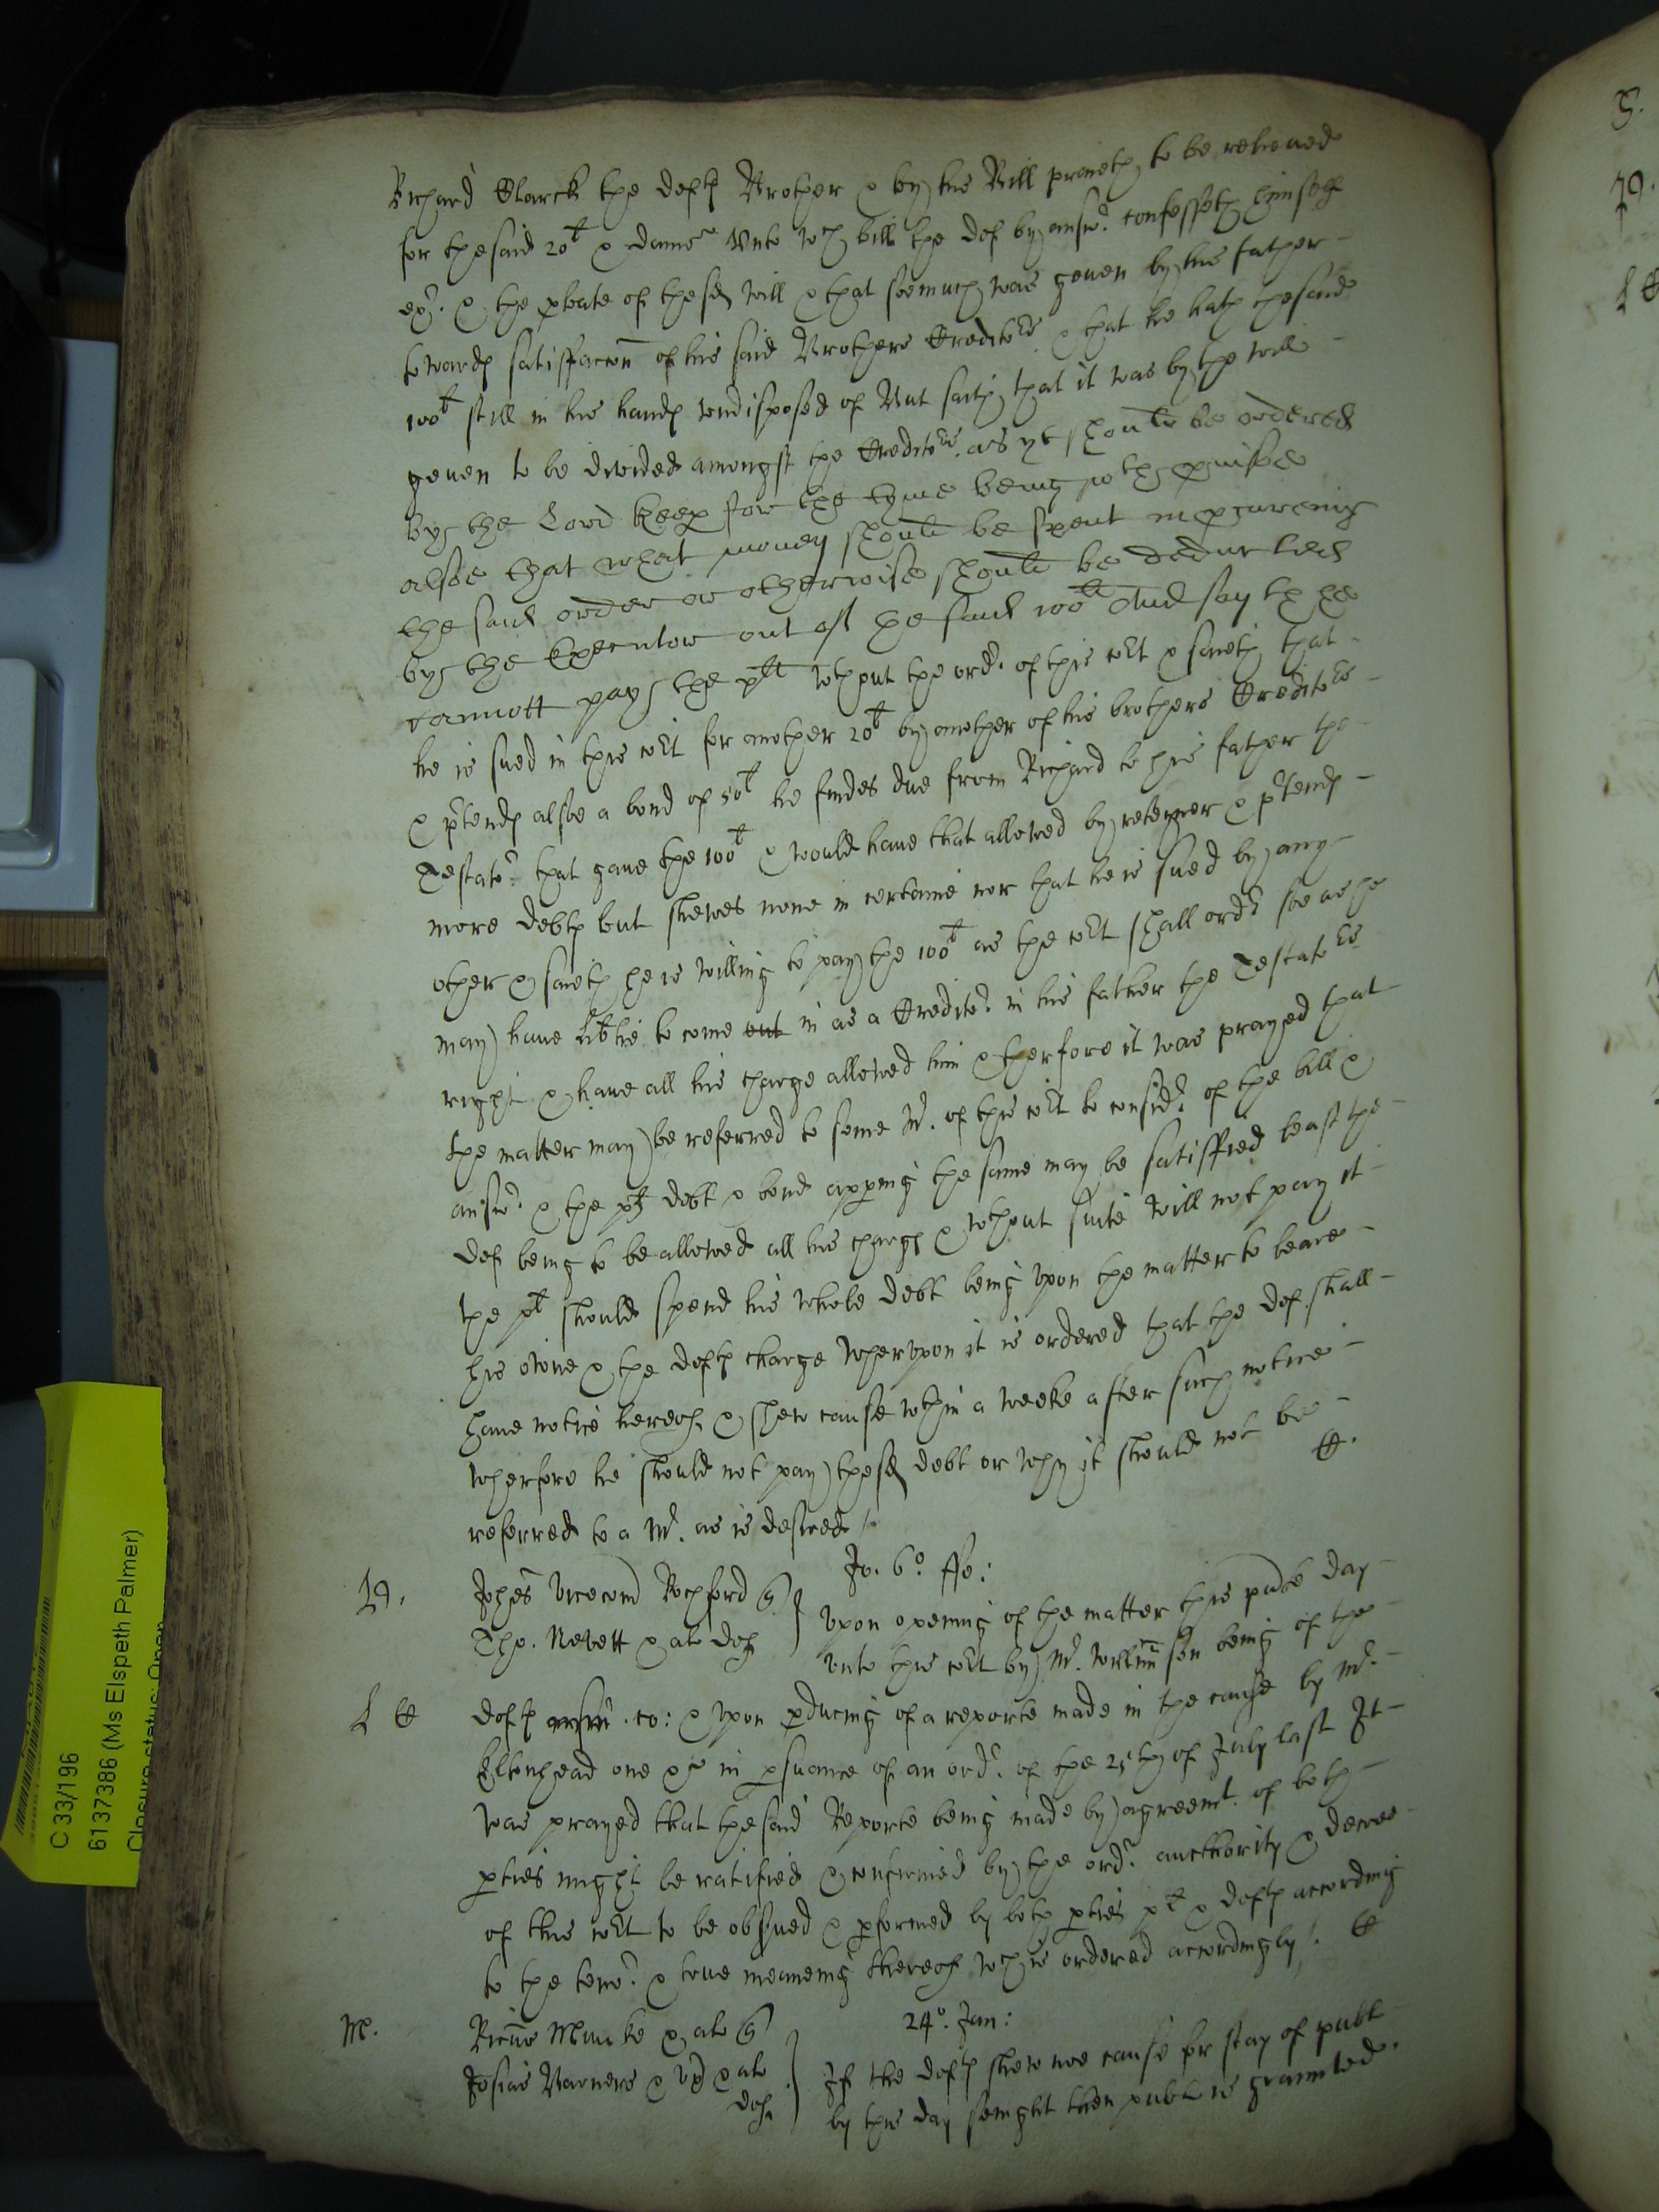 Richard Clarck the deftes Brother & by his Bill praieth to be releeved
for the said 20l & damc Unto wch bill the def by answr. confesseth himself
exr. & the pbate of the sd will & that soemuch was geven by his father -
towardes satisfaccon of his said Brothers Creditors & that he hath the said
100l still in his handes undisposed of But saith that it was by the will -
geven to be divided amongst the Creditors. as yt should be ordered
by the Lord Keep for the tyme being wth pvisoe
alsoe that what money should be spent in pcureing
the said order or otherwise should be deducted
by the Executor out of the said 100l And sayth he
cannott pay the plt wthout the ordr. of this cort & saieth that -
he is sued in this cort for another 20l by another of his brothers Creditors -
& ptendes alsoe a bond of 50l he findes due from Richard to his father the -
Testator. that gave the 100l & would have that allowed by reteyner & ptendes -
more debtes but shewes none in certaine nor that he is sued by any -
other & saieth he is willing to pay the 100l as the cort shall ordr soe as he
may have libtie to come out in as a Creditor. in his father the Testators
right & have all his charge allowed him & therfore it was prayed that
the matter may be referred to some Mr. of this cort to considr. of the bill &
answr. & the plts debt & bond appering the same may be satisffied least the -
def being to be allowed all his charges & wthout suite will not pay it -
the plt should spend his whole debt being upon the matter to beare -
his owne & the deftes charge Wherupon it is ordered that the def. shall -
have notice hereof & shew cause wthin a weeke after such notice -
wherfore he should not pay the sd debt or why it should not be -
referred to a Mr. as is desired /.
Jo. 6o. ffe:
Johes vicecom Rochford
Tho. Nevett & al defts
Upon opening of the matter this pnte day -
unto this cort by Mr. Wilkinson being of the -
L
deftes co: & upon pducing of a reporte made in the cause by Mr. -
Eltonhead one &c in psuance of an ordr. of the 25th of July last It -
was prayed that the said Reporte being made by agreemt. of both -
pties might be ratified & confirmed by the ordr. aucthority & decree -
of this cort to be obsved & pformed by both pties plt & deftes according
to the tenor. & true meaneing thereof wch is ordered accordingly /.
M.
Ricus & al
Josias Barners & ux & al
deft
24o. Jan:
If the deftes shew noe cause for stay of publ
by this day senight then publ is graunted.
C 33/196
6137386 (Ms Elspeth Palmer)
Closure status: Open